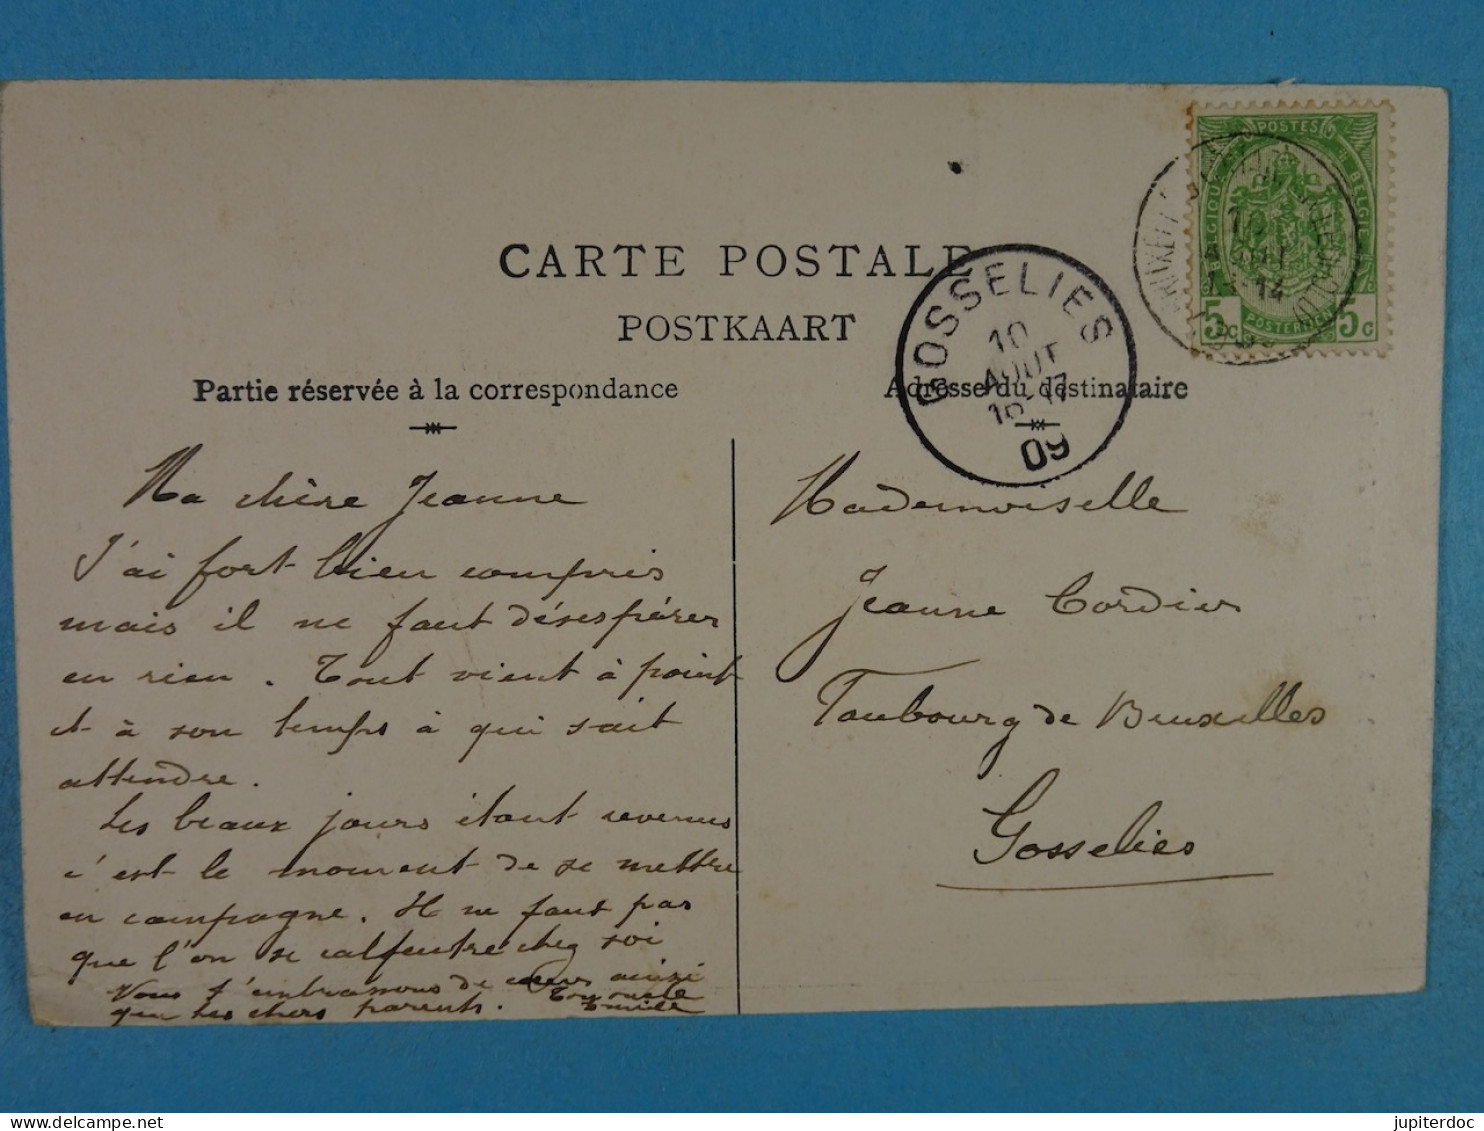 CARTE POSTALE
POSTKAART
Partie réservée à la correspondance
Adresse du destinataire
POSTES
BELGIQUE
BELGIE
POSTERIJEN
5c 5c
10
AOUT
-14
GOSSELIES
10
AOUT
16-17
09
Ma chère Jeanne
J'ai fort bien compris
mais il ne faut désespérer
en rien. Tout vient à point
et à son temps à qui sait
attendre.
Les beaux jours étant revenus
c'est le moment de se mettre
en campagne. Il ne faut pas
que l'on se calfeutre chez soi
Nous t'embrassons de cœur ainsi
que tes chers parents. Ton oncle
Emile
Mademoiselle
Jeanne Cordier
Faubourg de Bruxelles
Gosselies
jupiterdoc
delcampe.net